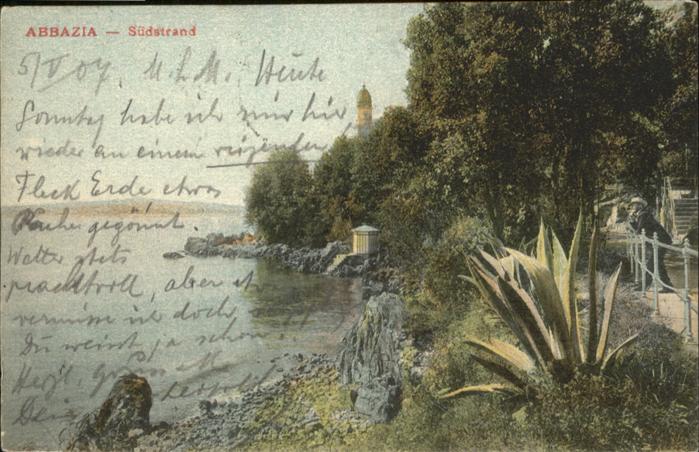 ABBAZIA — Südstrand
5/V 07. M. L. M. Heute
Sonntag habe ich mir hier
wieder an einem reizenden
Fleck Erde etwas
Ruhe gegönnt.
Wetter stets
prachtvoll, aber
vermisse ich doch
Du weisst ja schon
Herzl.
Dein